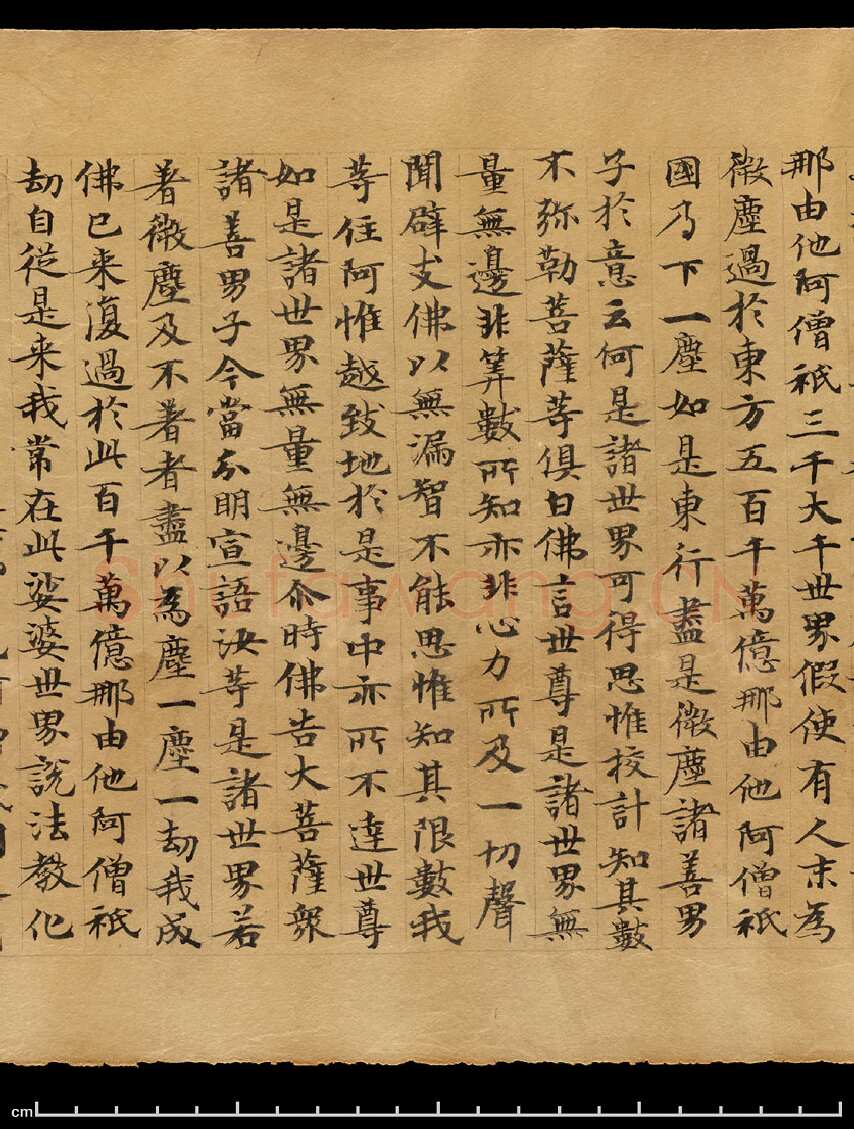 那由他阿僧祇三千大千世界假使有人末為
微塵過於東方五百千萬億那由他阿僧祇
國乃下一塵如是東行盡是微塵諸善男
子於意云何是諸世界可得思惟校計知其數
不弥勒菩薩等俱白佛言世尊是諸世界無
量無邊非筭數所知亦非心力所及一切聲
聞辟支佛以無漏智不能思惟知其限數我
等住阿惟越致地於是事中亦所不達世尊
如是諸世界無量無邊尒時佛告大菩薩衆
諸善男子今當分明宣語汝等是諸世界若
著微塵及不著者盡以為塵一塵一劫我成
佛已来復過於此百千萬億那由他阿僧祇
劫自從是来我常在此娑婆世界說法教化
Shufawang.CN
cm